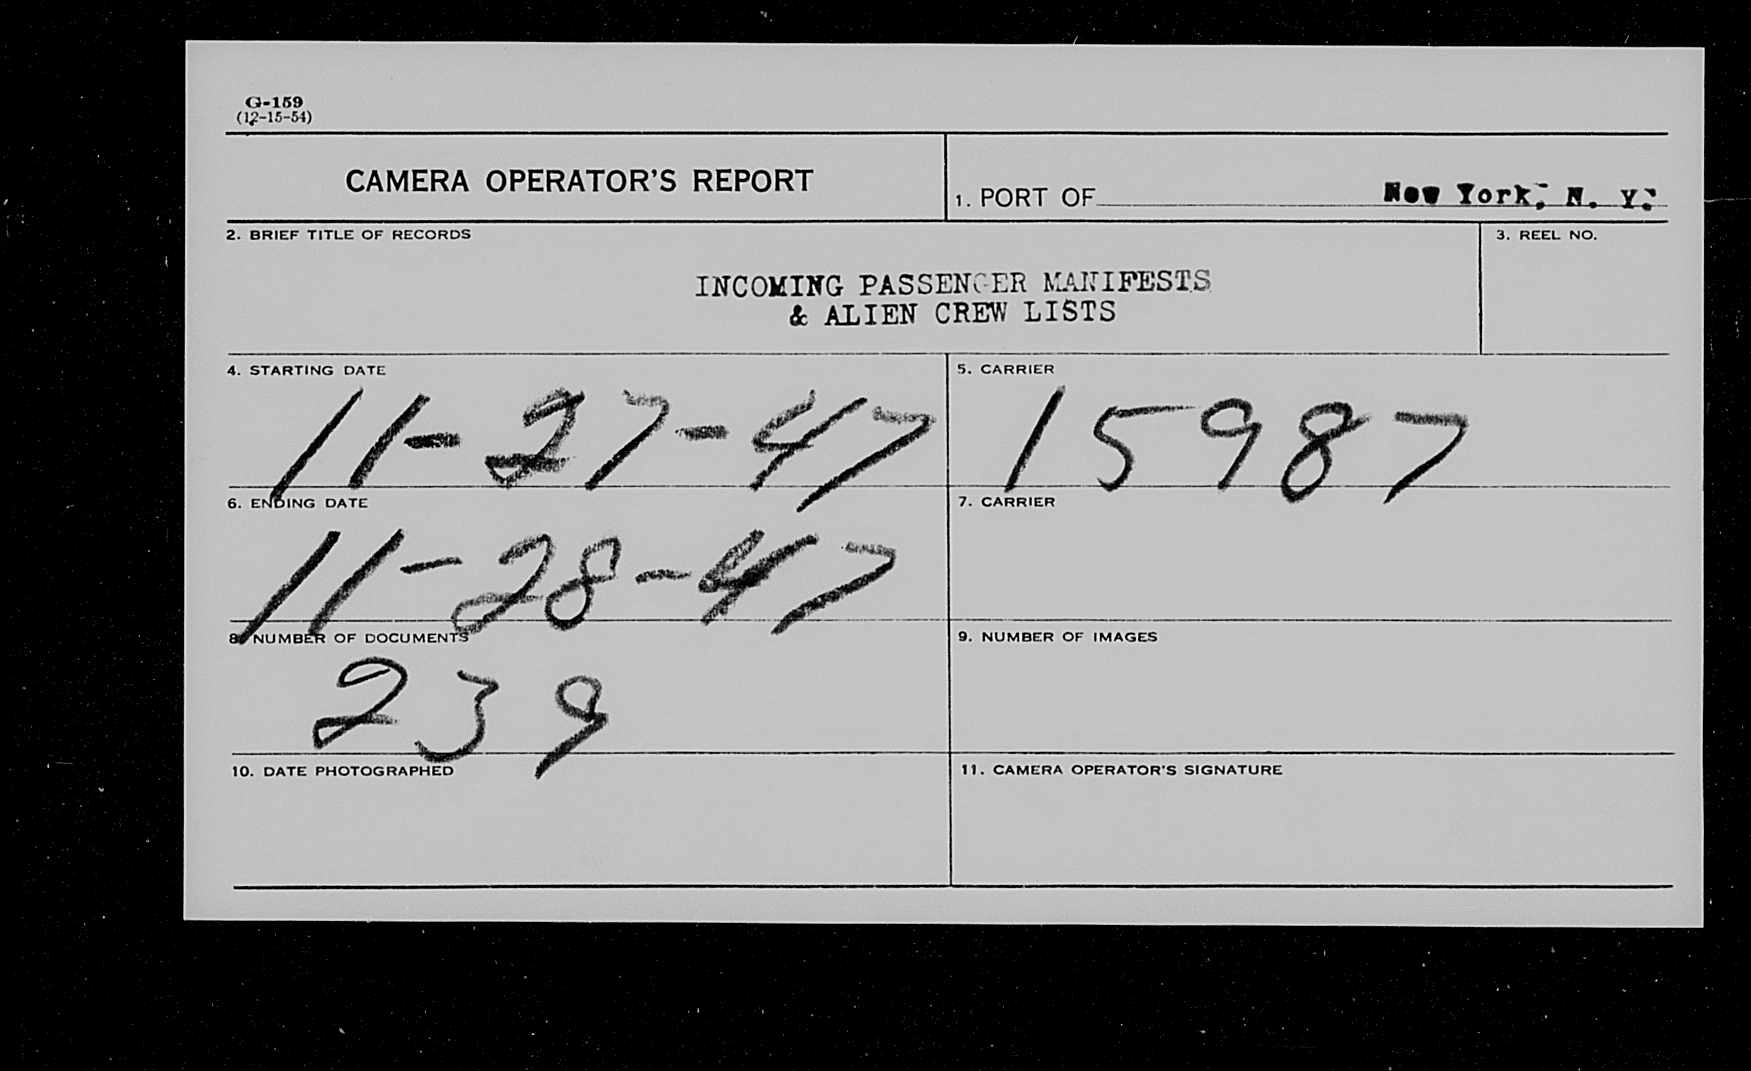 G-159
(12-15-54)
CAMERA OPERATOR'S REPORT
1. PORT OF New York, N. Y.
2. BRIEF TITLE OF RECORDS
3. REEL NO.
INCOMING PASSENGER MANIFESTS
& ALIEN CREW LISTS
4. STARTING DATE
11-27-47
5. CARRIER
15987
6. ENDING DATE
11-28-47
7. CARRIER
8. NUMBER OF DOCUMENTS
239
9. NUMBER OF IMAGES
10. DATE PHOTOGRAPHED
11. CAMERA OPERATOR'S SIGNATURE